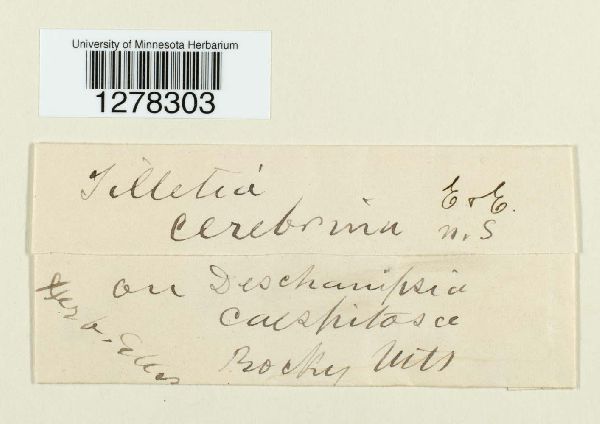 University of Minnesota Herbarium
1278303
Tilletia
cerebrina E & E.
n. S
on Deschampsia
caespitosa
Rocky Mts
Herb. Ellis